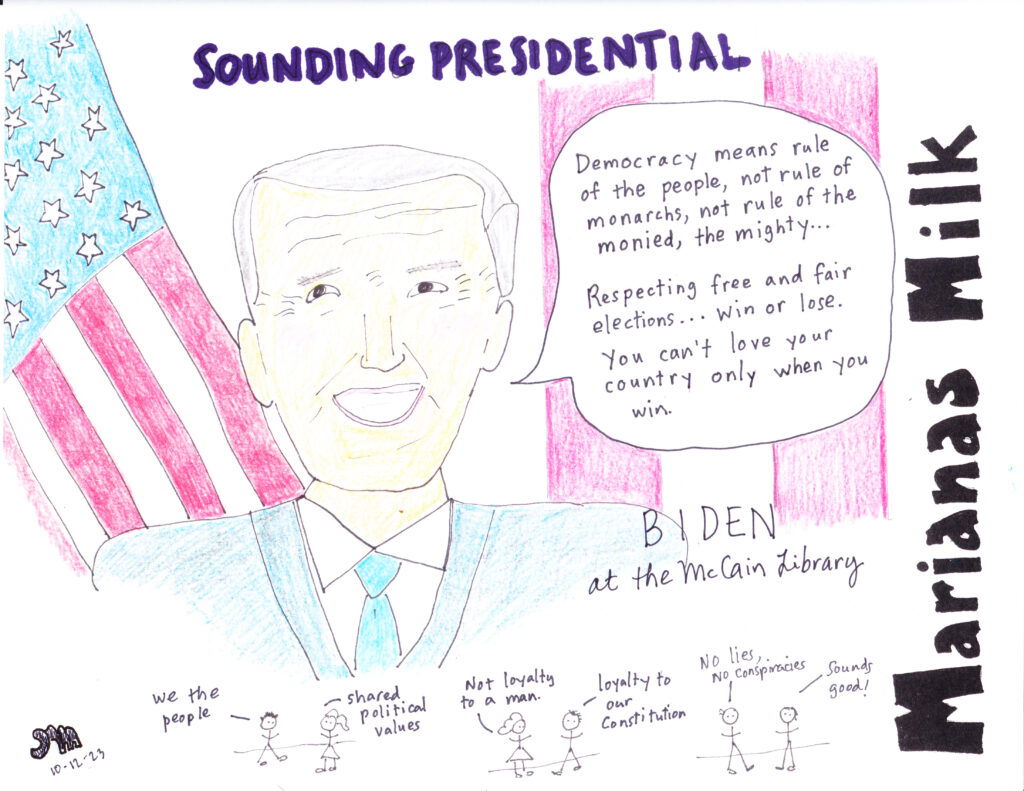 SOUNDING PRESIDENTIAL
Democracy means rule
of the people, not rule of
monarchs, not rule of the
monied, the mighty...
Respecting free and fair
elections... win or lose.
You can't love your
country only when you
win.
BIDEN
at the McCain Library
Marianas Milk
We the
people
shared
political
values
Not loyalty
to a man.
loyalty to
our
Constitution
No lies,
No conspiracies
Sounds
good!
10-12-23